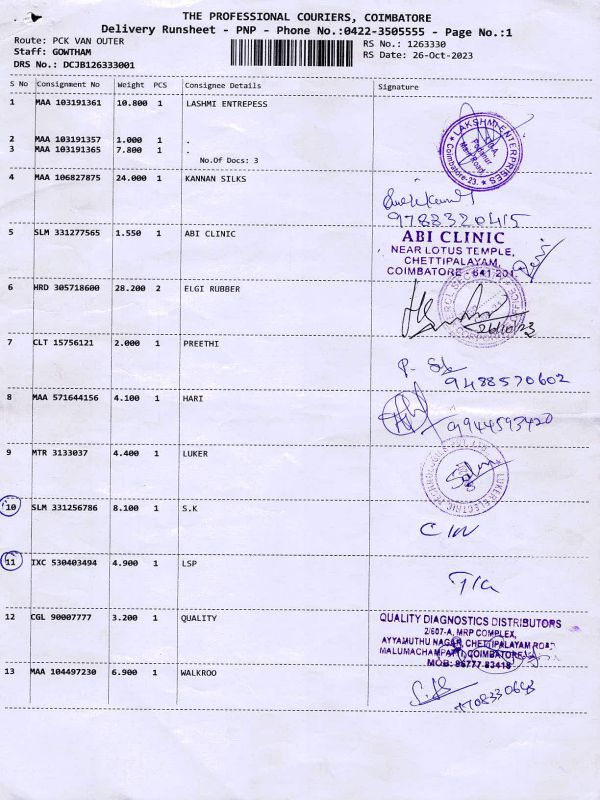 THE PROFESSIONAL COURIERS, COIMBATORE
Delivery Runsheet - PNP - Phone No.:0422-3505555 - Page No.:1
Route: PCK VAN OUTER
Staff: GOWTHAM
DRS No.: DCJB126333001
RS No.: 1263330
RS Date: 26-Oct-2023
S No Consignment No Weight PCS Consignee Details Signature
1 MAA 103191361 10.800 1 LASHMI ENTREPESS
2 MAA 103191357 1.000 1 .
3 MAA 103191365 7.800 1 .
No.Of Docs: 3
LAKSHMI ENTERPRISES
Main Road
Coimbatore-23.
4 MAA 106827875 24.000 1 KANNAN SILKS
9788332045
5 SLM 331277565 1.550 1 ABI CLINIC
ABI CLINIC
NEAR LOTUS TEMPLE,
CHETTIPALAYAM,
COIMBATORE - 641 201
6 HRD 305718600 28.200 2 ELGI RUBBER
26/10/23
7 CLT 15756121 2.000 1 PREETHI
9488570602
8 MAA 571644156 4.100 1 HARI
9944593420
9 MTR 3133037 4.400 1 LUKER
LUKER ELECTRIC
10 SLM 331256786 8.100 1 S.K
11 IXC 530403494 4.900 1 LSP
12 CGL 90007777 3.200 1 QUALITY
QUALITY DIAGNOSTICS DISTRIBUTORS
2/607-A, MRP COMPLEX,
AYYAMUTHU NAGAR, CHETTIPALAYAM ROAD
MALUMACHAMPATTI, COIMBATORE
MOB: 96777 83418
13 MAA 104497230 6.900 1 WALKROO